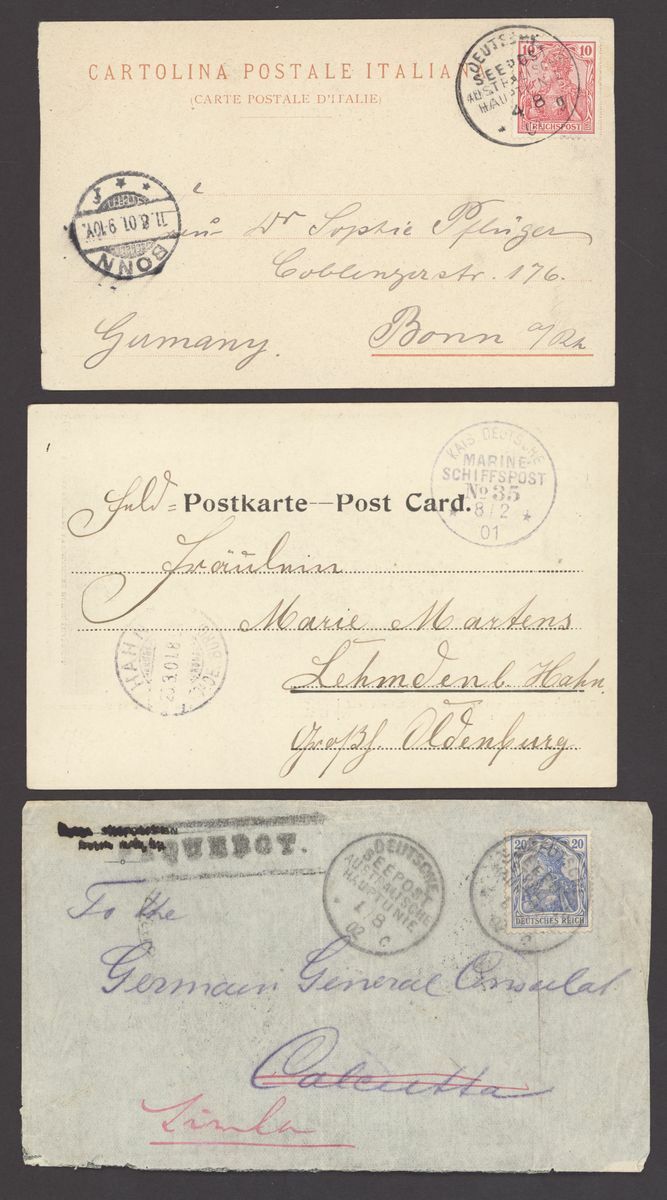 CARTOLINA POSTALE ITALIA
(CARTE POSTALE D'ITALIE)
DEUTSCHE
SEEPOST
HAUPT
4 8
g
10 10
REICHSPOST
11.8.01.9-10V.
BONN
Dr Sophie Pflüger
Coblenzerstr. 176.
Germany. Bonn a/Rh
KAIS. DEUTSCHE
MARINE-
SCHIFFSPOST
No 35
8/2
01
Feld= Postkarte--Post Card.
Fräulein
Marie Martens
HAHN
Lehmden b. Hahn
Großh. Oldenburg
PAQUEBOT.
DEUTSCHE
SEEPOST
HAUPTLINIE
8
02 c
20 20
DEUTSCHES REICH
To the
German General Consulat
Calcutta
Simla